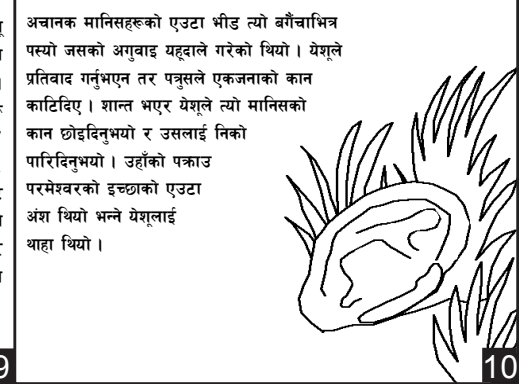 अचानक मानिसहरूको एउटा भीड त्यो बगैंचाभित्र
पस्यो जसको अगुवाइ यहूदाले गरेको थियो । येशूले
प्रतिवाद गर्नुभएन तर पत्रुसले एकजनाको कान
काटिदिए । शान्त भएर येशूले त्यो मानिसको
कान छोइदिनुभयो र उसलाई निको
पारिदिनुभयो । उहाँको पक्राउ
परमेश्वरको इच्छाको एउटा
अंश थियो भन्ने येशूलाई
थाहा थियो ।
9
10